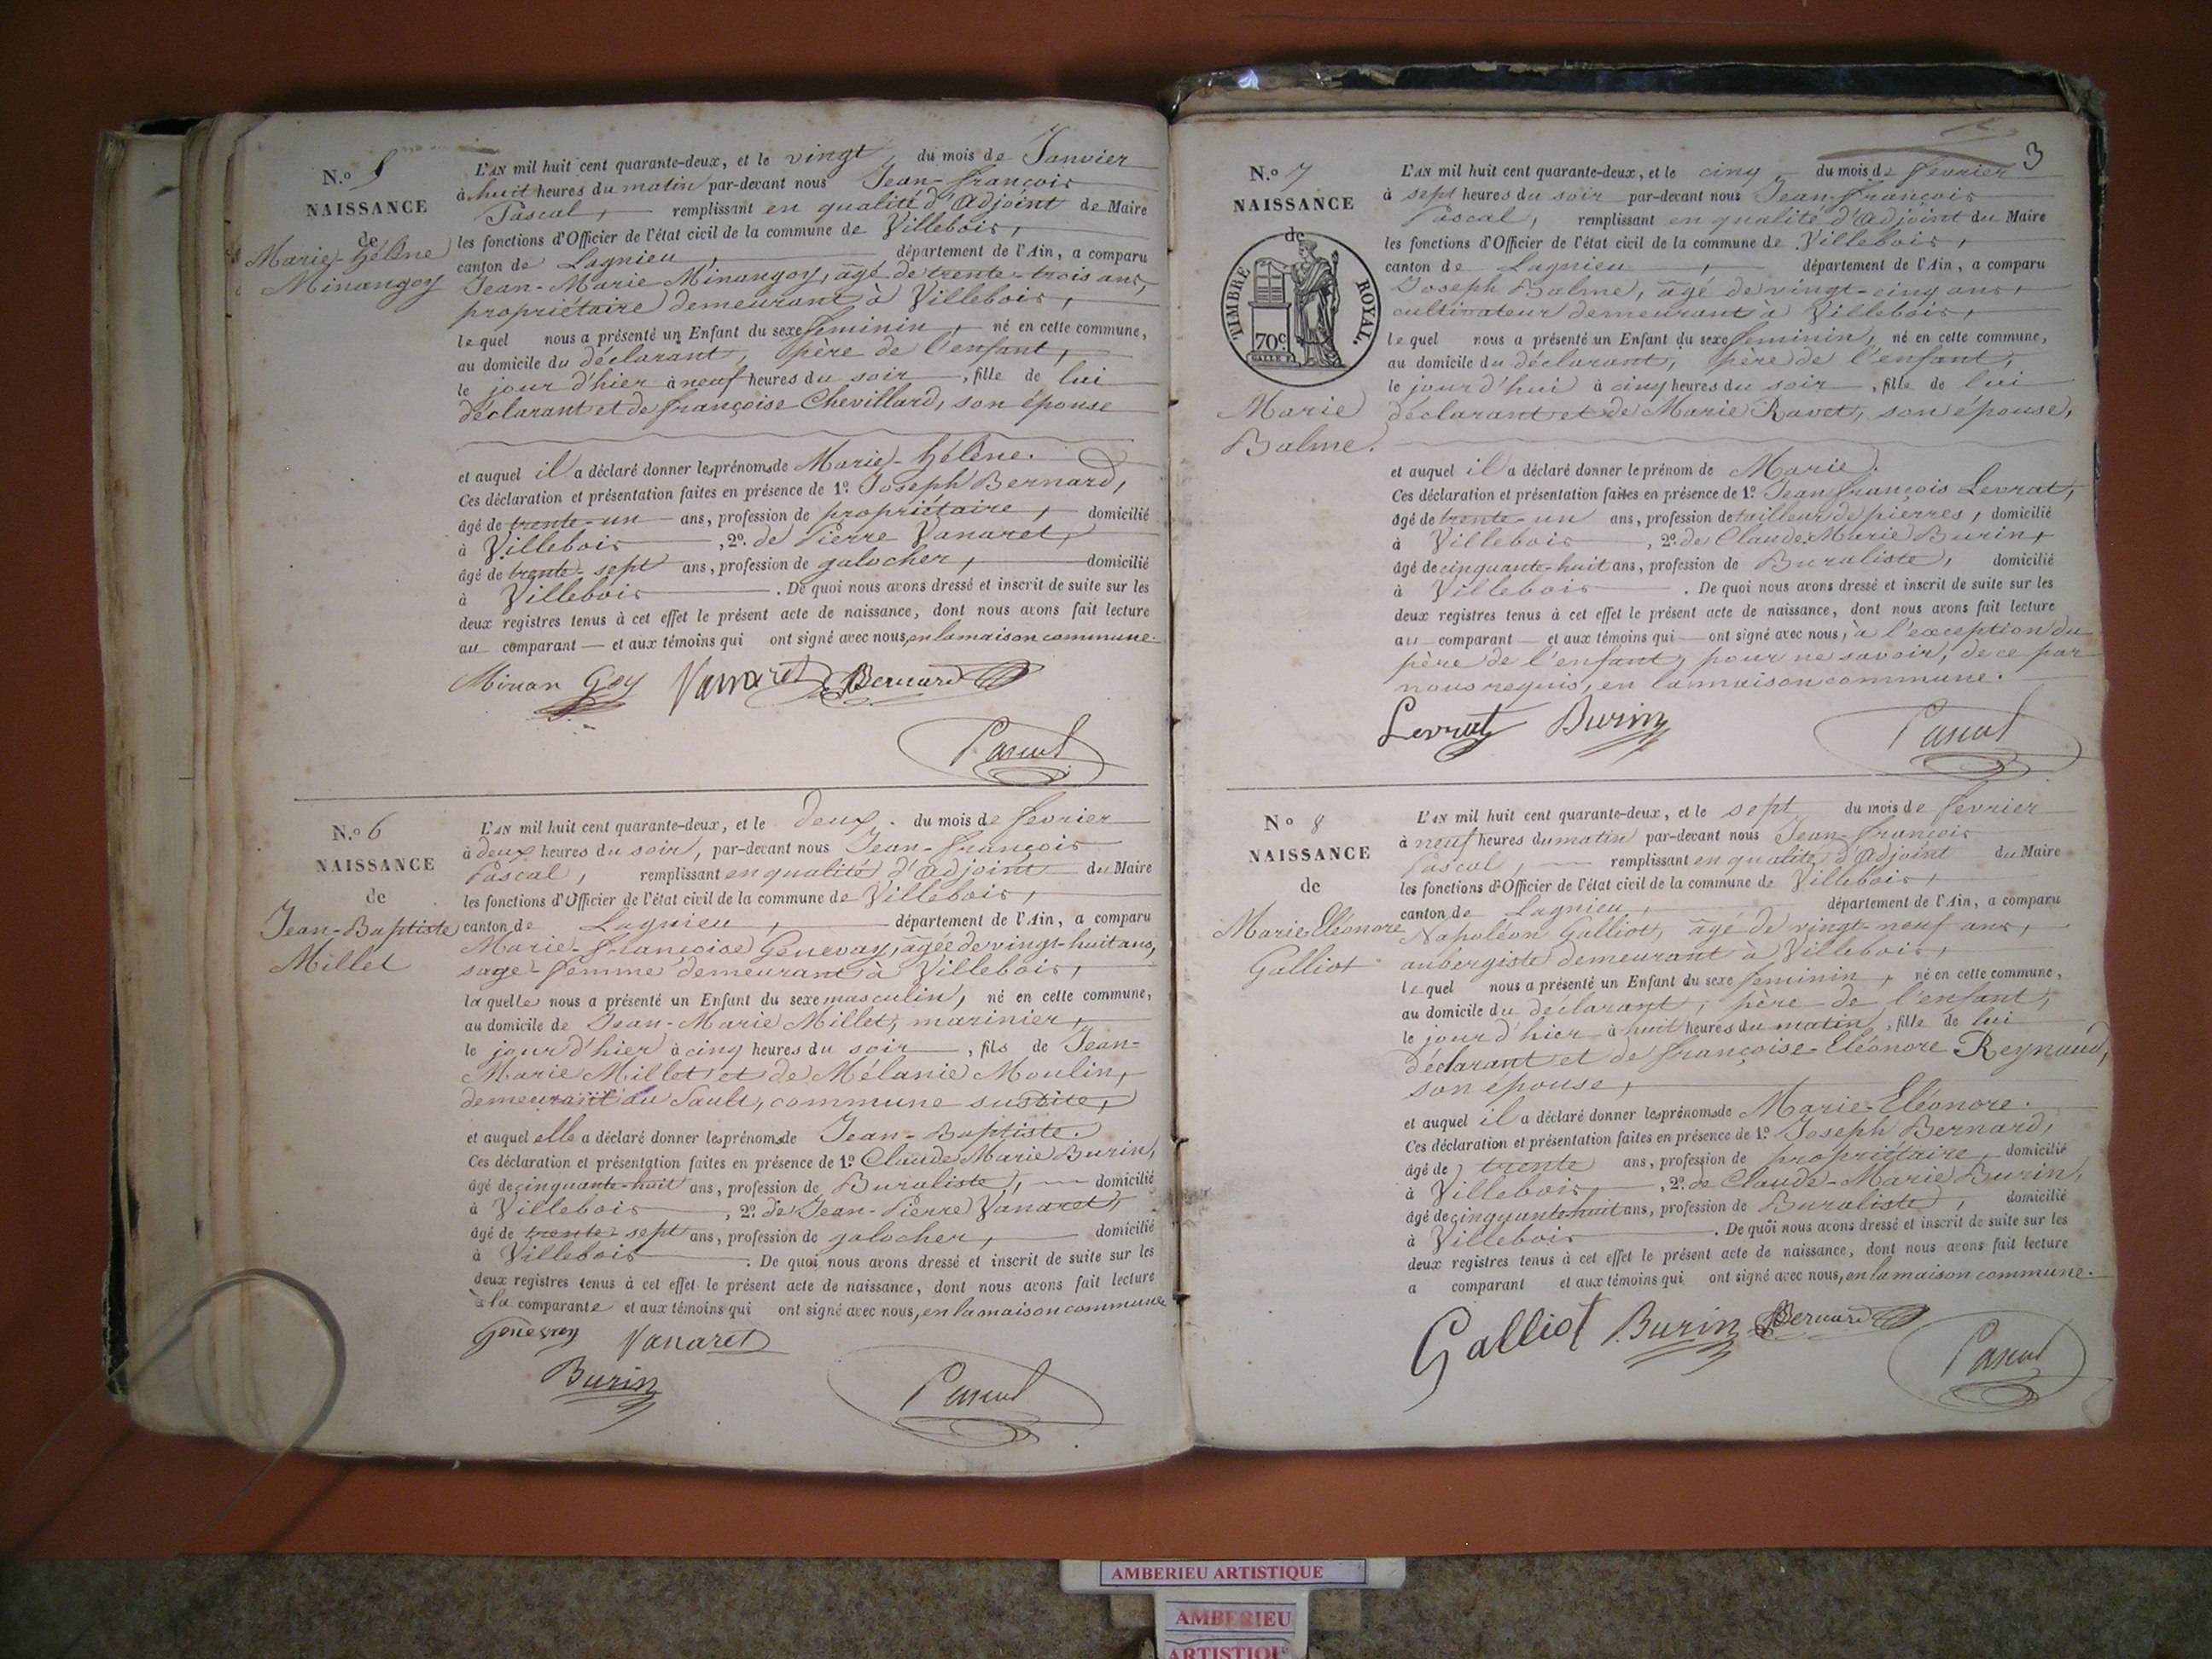 N.o 5
NAISSANCE
de
Marie-Hélène
Minangoy
L'AN mil huit cent quarante-deux, et le vingt, du mois de Janvier
à huit heures du matin par-devant nous Jean-françois
Pascal, remplissant en qualité d'Adjoint de Maire
les fonctions d'Officier de l'état civil de la commune de Villebois,
canton de Lagnieu, département de l'Ain, a comparu
Jean-Marie Minangoy, âgé de trente-trois ans,
propriétaire demeurant à Villebois,
lequel nous a présenté un Enfant du sexe féminin, né en cette commune,
au domicile du déclarant, père de l'enfant,
le jour d'hier à neuf heures du soir, fille de lui
déclarant et de françoise Chevillard, son épouse
et auquel il a déclaré donner les prénoms de Marie-Hélène.
Ces déclaration et présentation faites en présence de 1.o Joseph Bernard,
âgé de trente-un ans, profession de propriétaire, domicilié
à Villebois, 2.o de Pierre Vanaret,
âgé de trente-sept ans, profession de galocher, domicilié
à Villebois. De quoi nous avons dressé et inscrit de suite sur les
deux registres tenus à cet effet le présent acte de naissance, dont nous avons fait lecture
au comparant et aux témoins qui ont signé avec nous, en la maison commune.
Minan Goy Vanaret Bernard
Pascal
N.o 6
NAISSANCE
de
Jean-Baptiste
Millet
L'AN mil huit cent quarante-deux, et le deux. du mois de février
à deux heures du soir, par-devant nous Jean-françois
Pascal, remplissant en qualité d'Adjoint du Maire
les fonctions d'Officier de l'état civil de la commune de Villebois,
canton de Lagnieu, département de l'Ain, a comparu
Marie-françoise Genevay, âgée de vingt-huit ans,
sage-femme demeurant à Villebois,
laquelle nous a présenté un Enfant du sexe masculin, né en cette commune,
au domicile de Jean-Marie Millet, marinier,
le jour d'hier à cinq heures du soir, fils de Jean-
Marie Millet et de Mélanie Moulin,
demeurant au Sault, commune susdite,
et auquel elle a déclaré donner les prénoms de Jean-Baptiste.
Ces déclaration et présentation faites en présence de 1.o Claude Marie Burin,
âgé de cinquante-huit ans, profession de Buraliste, domicilié
à Villebois, 2.o de Jean-Pierre Vanaret,
âgé de trente-sept ans, profession de galocher, domicilié
à Villebois. De quoi nous avons dressé et inscrit de suite sur les
deux registres tenus à cet effet le présent acte de naissance, dont nous avons fait lecture
à la comparante et aux témoins qui ont signé avec nous, en la maison commune
Genevay Vanaret
Burin Pascal
3
N.o 7
NAISSANCE
de
TIMBRE ROYAL.
70c
Marie
Balme.
L'AN mil huit cent quarante-deux, et le cinq, du mois de février
à sept heures du soir par-devant nous Jean-françois
Pascal, remplissant en qualité d'Adjoint du Maire
les fonctions d'Officier de l'état civil de la commune de Villebois,
canton de Lagnieu, département de l'Ain, a comparu
Joseph Balme, âgé de vingt-cinq ans,
cultivateur demeurant à Villebois,
lequel nous a présenté un Enfant du sexe féminin, né en cette commune,
au domicile du déclarant, père de l'enfant,
le jour d'hui à cinq heures du soir, fille de lui
déclarant et de Marie Ravet, son épouse,
et auquel il a déclaré donner le prénom de Marie.
Ces déclaration et présentation faites en présence de 1.o Jean françois Levrat,
âgé de trente-un ans, profession de tailleur de pierres, domicilié
à Villebois, 2.o de Claude Marie Burin,
âgé de cinquante-huit ans, profession de Buraliste, domicilié
à Villebois. De quoi nous avons dressé et inscrit de suite sur les
deux registres tenus à cet effet le présent acte de naissance, dont nous avons fait lecture
au comparant et aux témoins qui ont signé avec nous, à l'exception du
père de l'enfant, pour ne savoir, de ce par
nous requis, en la maison commune.
Levrat Burin Pascal
No 8
NAISSANCE
de
Marie Eléonore
Galliot
L'AN mil huit cent quarante-deux, et le sept du mois de février
à neuf heures du matin par-devant nous Jean-françois
Pascal, remplissant en qualité d'Adjoint du Maire
les fonctions d'Officier de l'état civil de la commune de Villebois,
canton de Lagnieu, département de l'Ain, a comparu
Napoléon Galliot, âgé de vingt-neuf ans,
aubergiste demeurant à Villebois,
lequel nous a présenté un Enfant du sexe féminin, né en cette commune,
au domicile du déclarant, père de l'enfant,
le jour d'hier à huit heures du matin, fille de lui
déclarant et de françoise-Eléonore Reynaud,
son épouse,
et auquel il a déclaré donner les prénoms de Marie-Eléonore.
Ces déclaration et présentation faites en présence de 1.o Joseph Bernard,
âgé de trente ans, profession de propriétaire, domicilié
à Villebois, 2.o de Claude-Marie Burin,
âgé de cinquante-huit ans, profession de Buraliste, domicilié
à Villebois. De quoi nous avons dressé et inscrit de suite sur les
deux registres tenus à cet effet le présent acte de naissance, dont nous avons fait lecture
a comparant et aux témoins qui ont signé avec nous, en la maison commune.
Galliot Burin Bernard
Pascal
AMBERIEU ARTISTIQUE
AMBERIEU
ARTISTIQUE